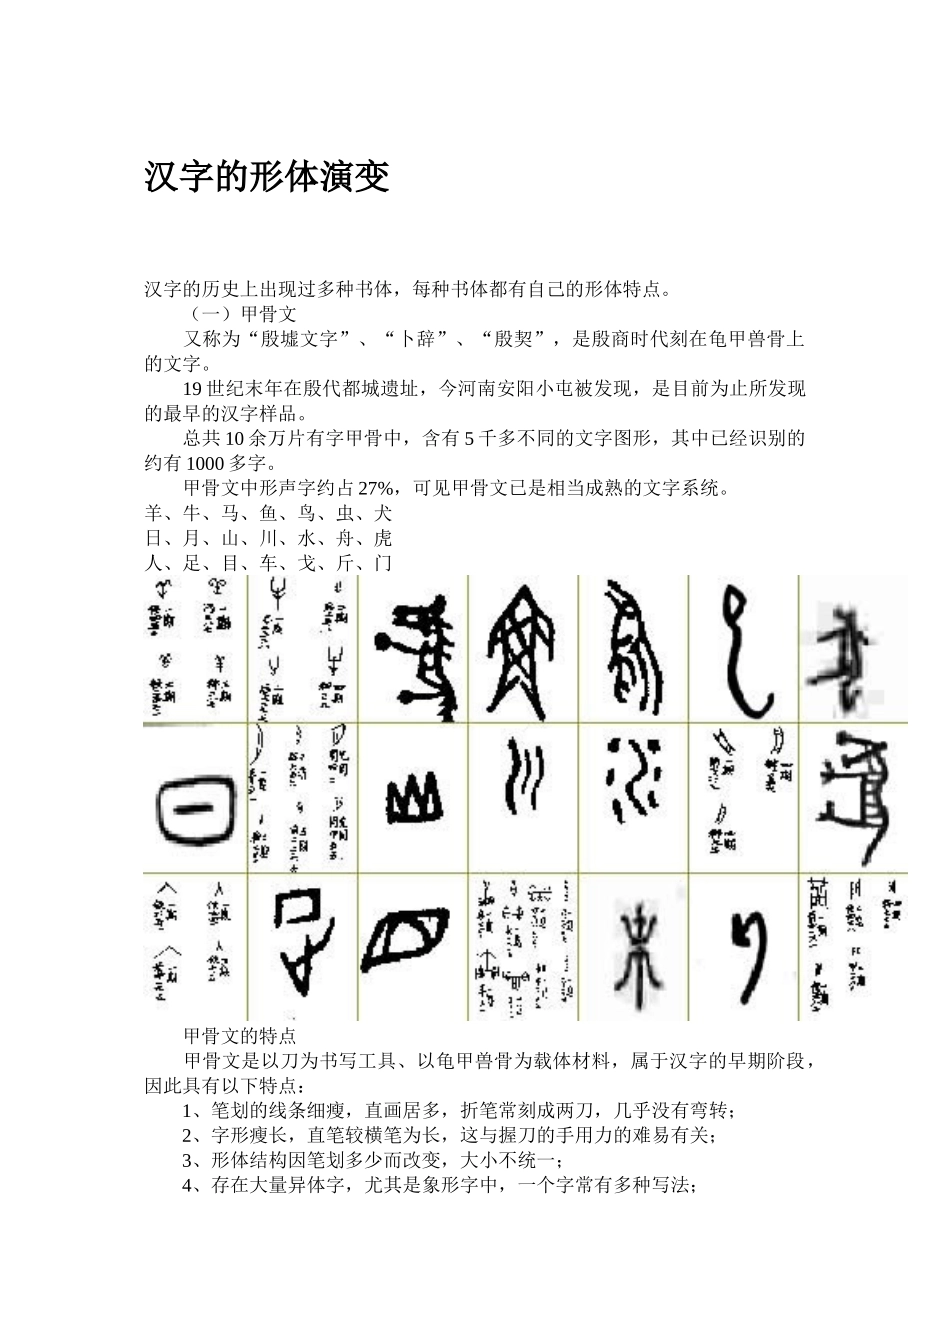 汉字的形体演变
汉字的历史上出现过多种书体，每种书体都有自己的形体特点。
（一）甲骨文
又称为“殷墟文字”、“卜辞”、“殷契”，是殷商时代刻在龟甲兽骨上
的文字。
19 世纪末年在殷代都城遗址，今河南安阳小屯被发现，是目前为止所发现
的最早的汉字样品。
总共 10 余万片有字甲骨中，含有 5 千多不同的文字图形，其中已经识别的
约有 1000 多字。
甲骨文中形声字约占 27%，可见甲骨文已是相当成熟的文字系统。
羊、牛、马、鱼、鸟、虫、犬
日、月、山、川、水、舟、虎
人、足、目、车、戈、斤、门
甲骨文的特点
甲骨文是以刀为书写工具、以龟甲兽骨为载体材料，属于汉字的早期阶段，
因此具有以下特点：
1、笔划的线条细瘦，直画居多，折笔常刻成两刀，几乎没有弯转；
2、字形瘦长，直笔较横笔为长，这与握刀的手用力的难易有关；
3、形体结构因笔划多少而改变，大小不统一；
4、存在大量异体字，尤其是象形字中，一个字常有多种写法；